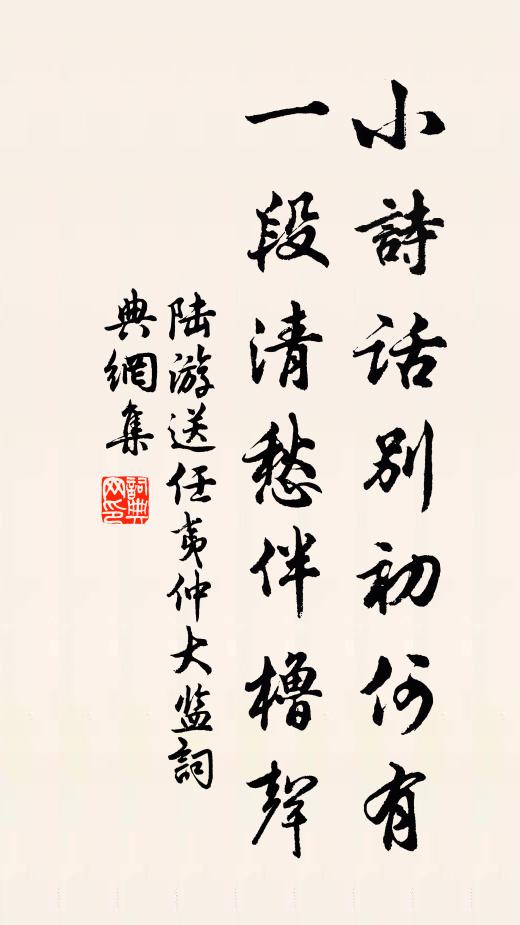 小詩话别初何有
一段清愁伴櫓聲
陆游送任夷仲大监詞
典網集
詞典网印